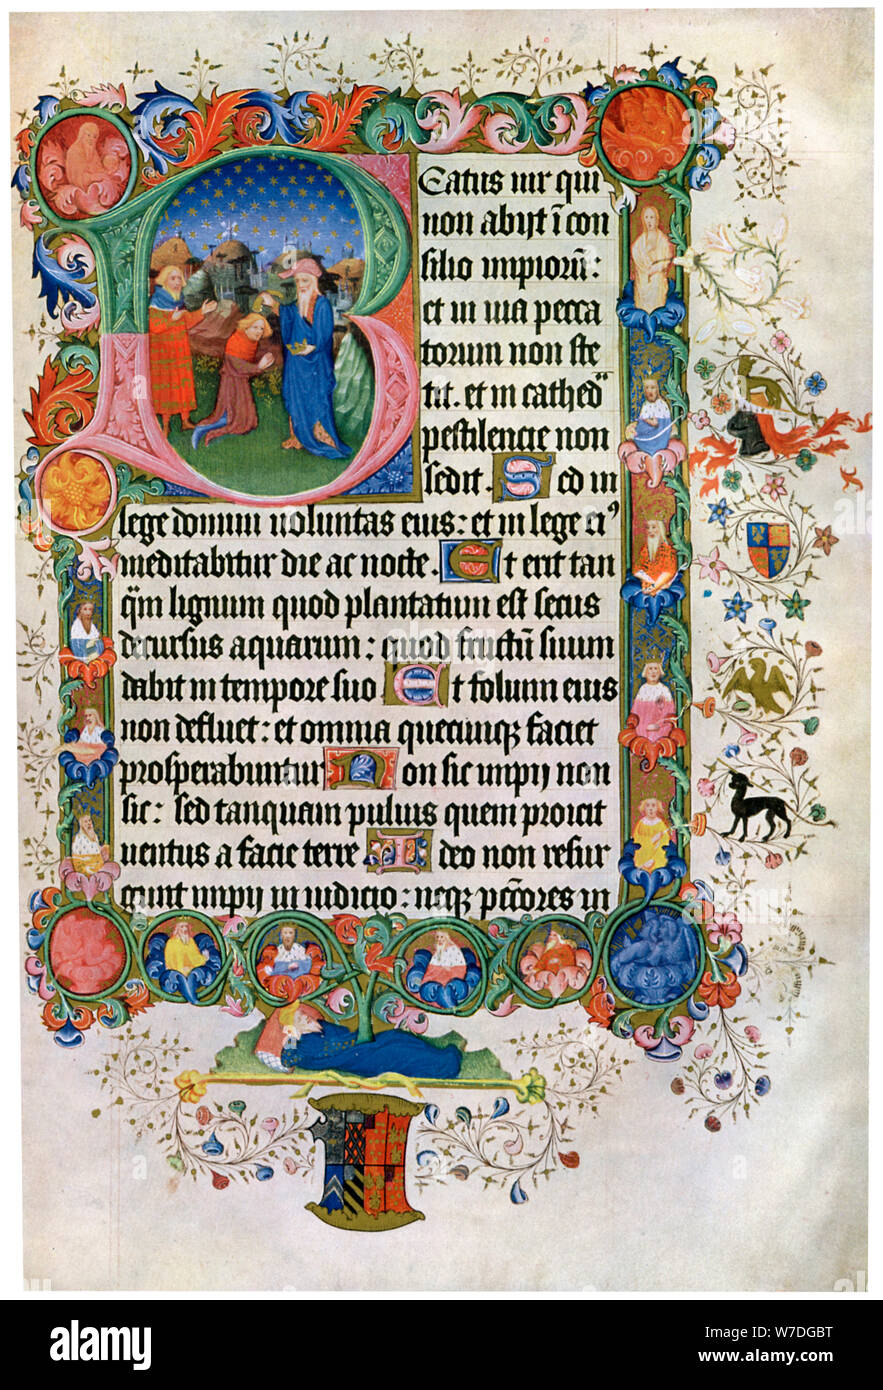 Beatus uir qui
non abijt ī con
silio impiorū:
et in uia pecca
torum non ste
tit. et in cathedᵃ
pestilencie non
sedit. Sed in
lege domini uoluntas eius: et in lege eiꝰ
meditabitur die ac nocte. Et erit tan
q̄m lignum quod plantatum est secus
decursus aquarum: quod fructū suum
dabit in tempore suo Et folium eius
non defluet: et omnia quecunqꝫ faciet
prosperabuntur Non sic impij non
sic: sed tanquam puluis quem proicit
uentus a facie terre Ideo non resur
gunt impij in iudicio: neqꝫ pc̄tores in
alamy
Image ID: W7DGBT
www.alamy.com